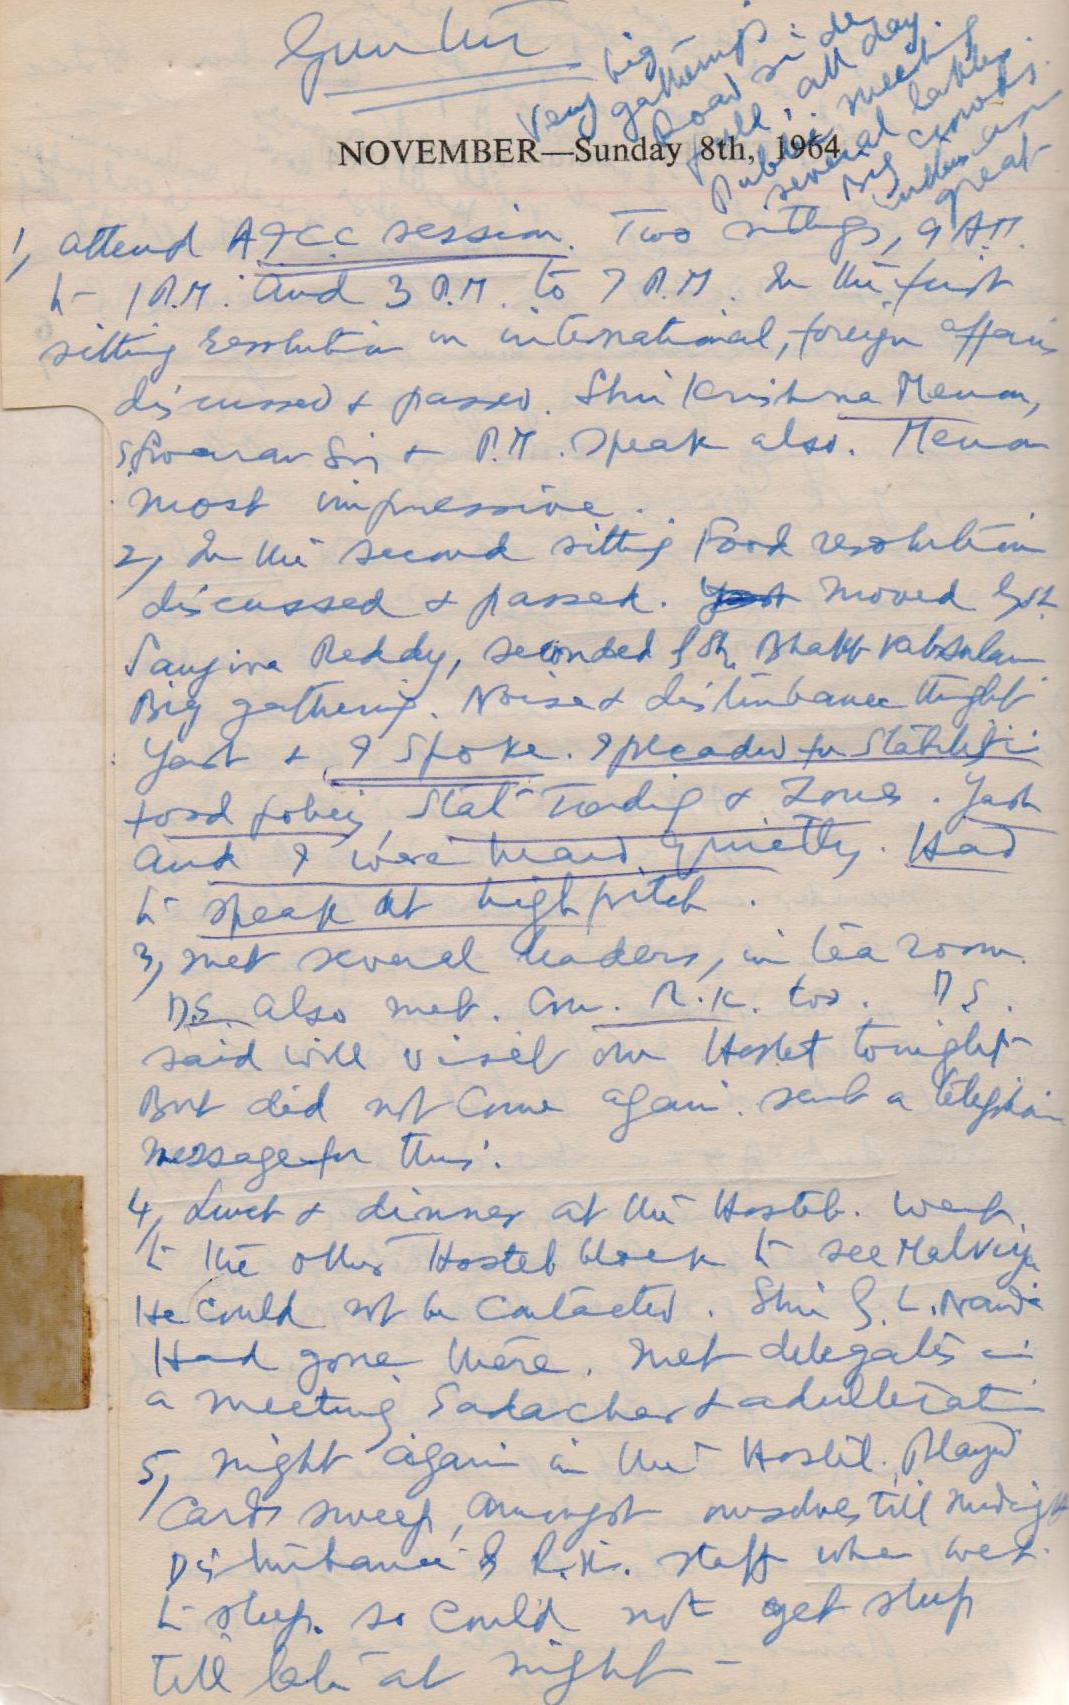 Guntur
Very big
gatherings.
Road side
full, all day.
Public meeting
several lakhs
Big crowds.
enthusiasm
great
NOVEMBER—Sunday 8th, 1964
1, attend AICC session. Two sittings, 9 A.M.
to 1 P.M. and 3 P.M. to 7 P.M. In the first
sitting resolution on international, foreign affairs
discussed & passed. Shri Krishna Menon,
Swaran Singh & P.M. speak also. Menon
most impressive.
2, In the second sitting Food resolution
discussed & passed. moved by Sh.
Sanjiva Reddy, seconded by Sh. Bhakt
Big gathering. Noise & disturbance
Yash & I spoke. I pleaded for
food policy, State Trading & Zones. Yash
and I were heard quietly. Had
to speak at high pitch.
3, met several leaders, in tea room.
D.S. also met. Com. R.K. too. D.S.
said will visit our Hostel tonight
But did not come again. sent a telephone
message for this.
4, Lunch & dinner at the Hostel. Went
to the other Hostel block to see Malviya
He could not be contacted. Shri G. L. Nanda
Had gone there. Met delegates in
a meeting Sadachar & adulteration
5, night again in the Hostel. Played
cards sweep, amongst ourselves till midnight
Disturbance by staff when went
to sleep. so could not get sleep
till late at night -